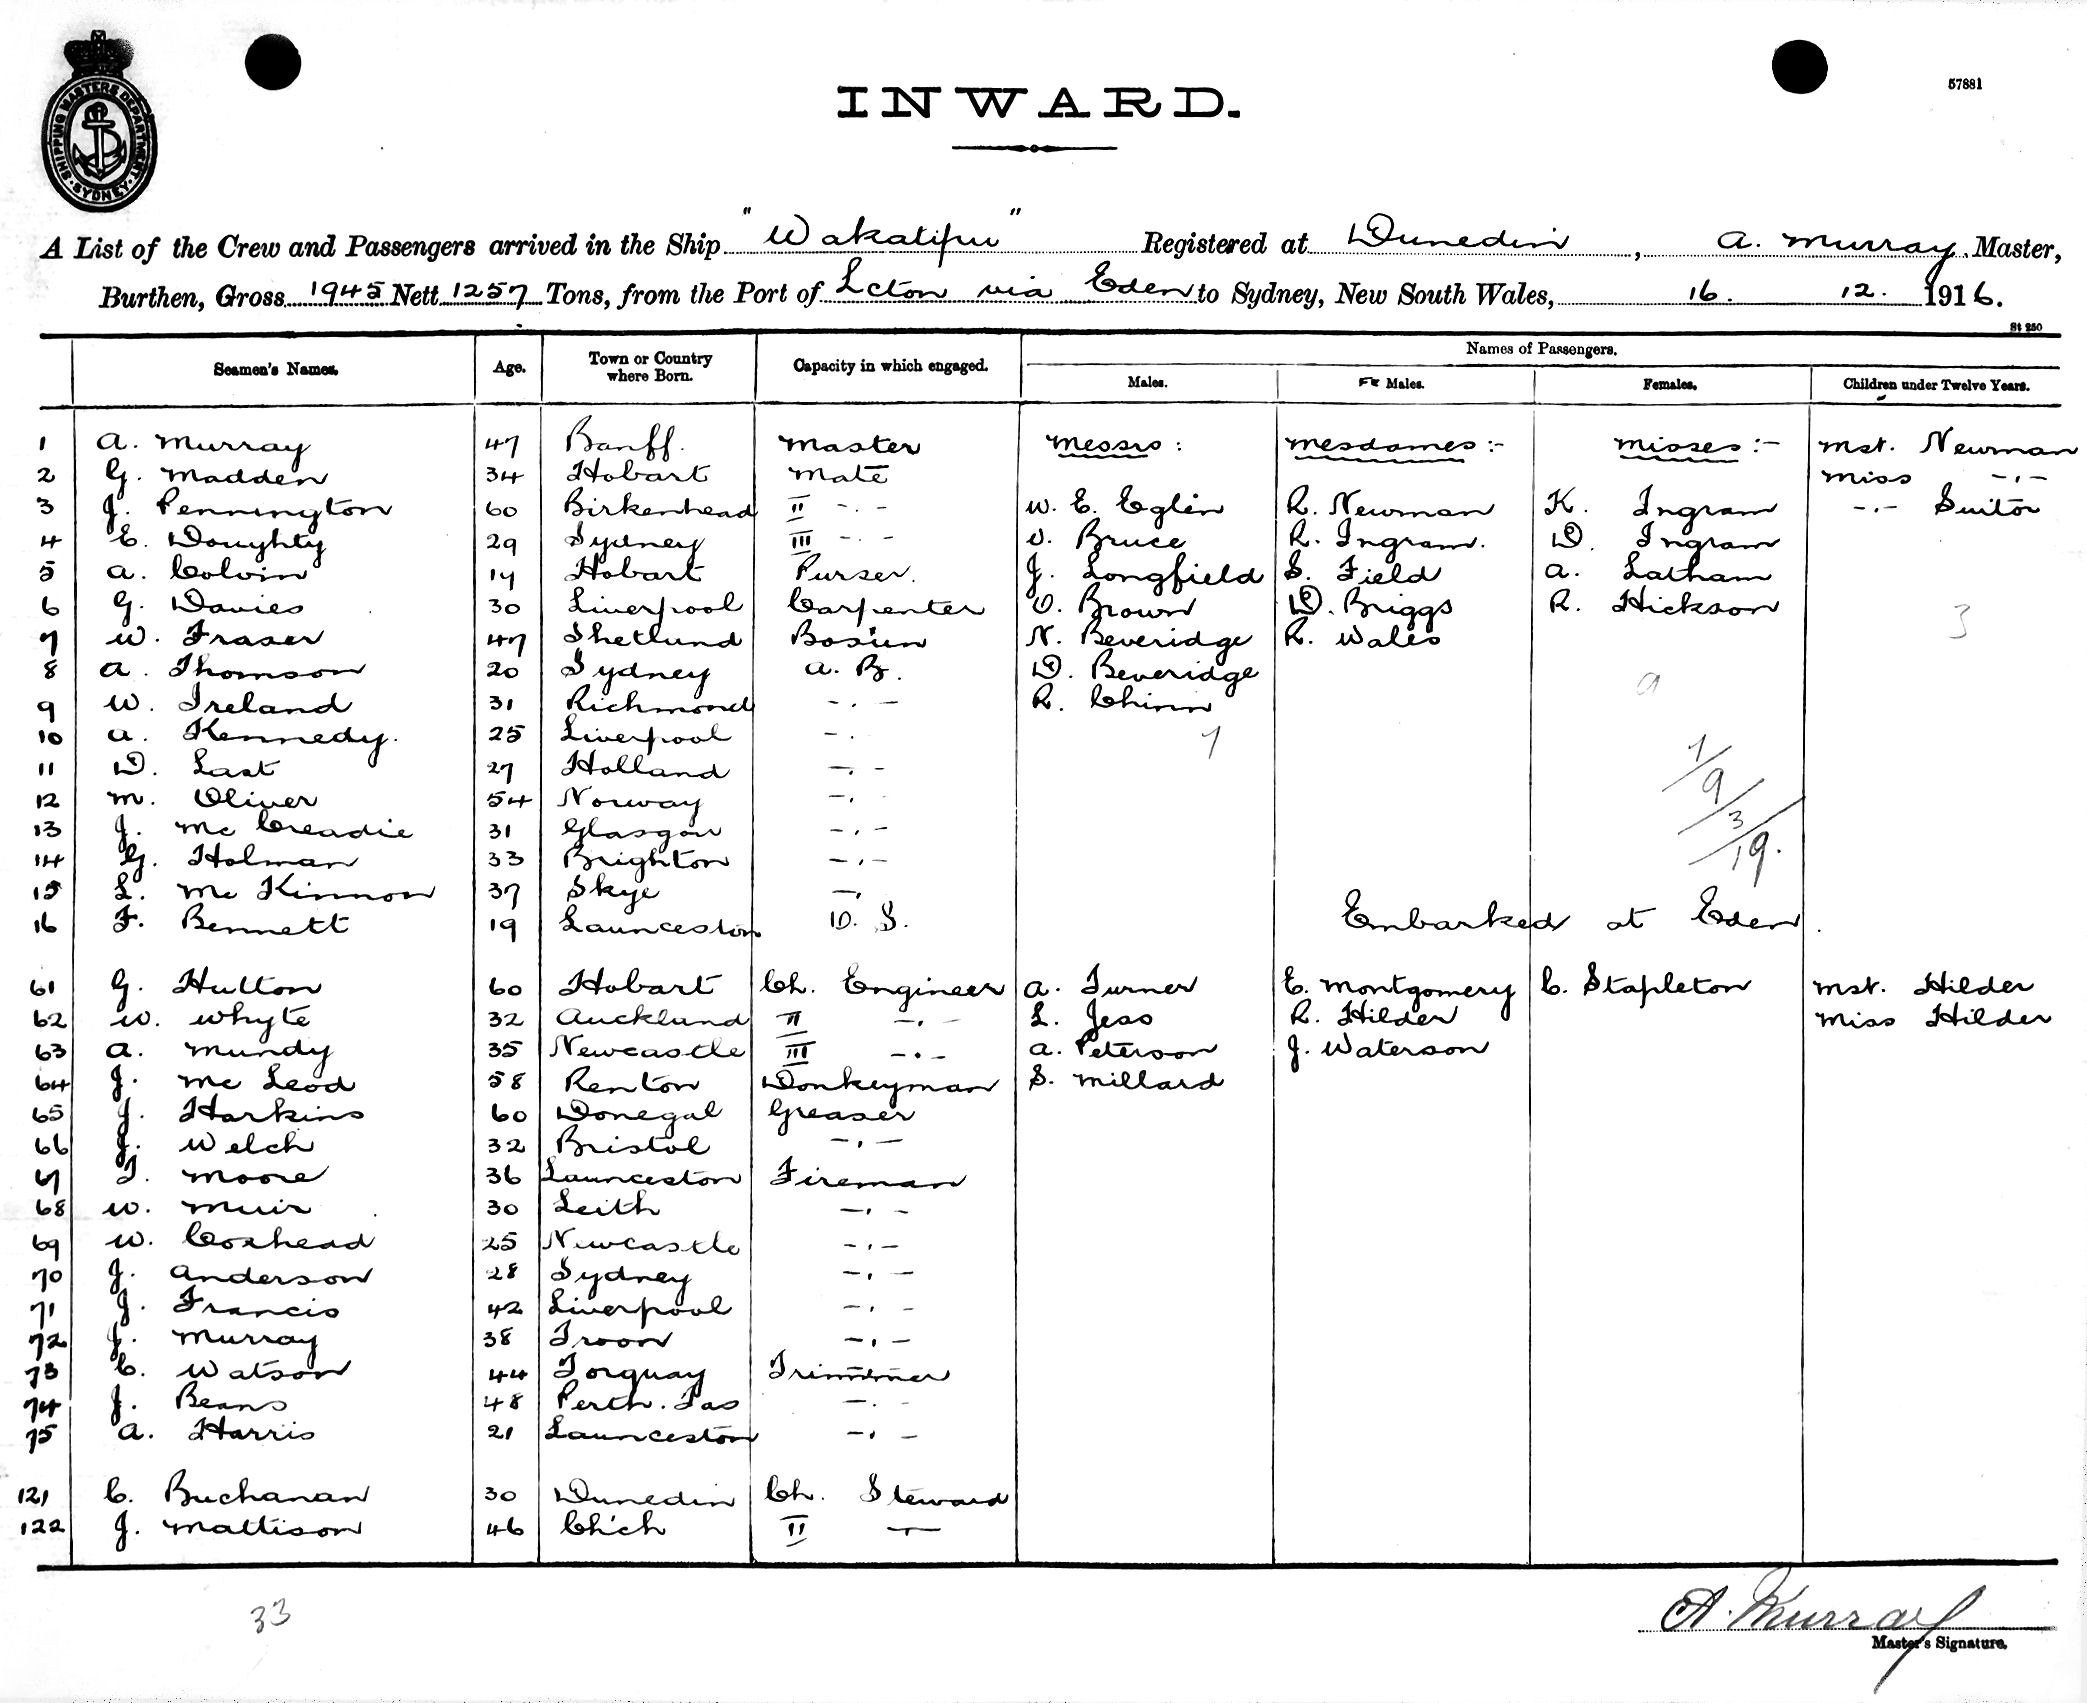 SHIPPING MASTERS DEPARTMENT
SYDNEY
57881
INWARD.
A List of the Crew and Passengers arrived in the Ship "Wakatipu" Registered at Dunedin, A. Murray, Master,
Burthen, Gross 1945 Nett 1257 Tons, from the Port of Lcton via Eden to Sydney, New South Wales, 16. 12. 1916.
St 250
Seamen's Names. Age. Town or Country where Born. Capacity in which engaged. Names of Passengers.
Males. Fe Males. Females. Children under Twelve Years.
1 A. Murray 47 Banff. Master Messrs: Mesdames:- Misses:- Mst. Newman
2 G. Madden 34 Hobart Mate Miss -.-
3 J. Pennington 60 Birkenhead II -.- W. E. Eglin R. Newman K. Ingram -.- Suitor
4 E. Doughty 29 Sydney III -.- V. Bruce R. Ingram. D. Ingram
5 A. Colvin 19 Hobart Purser. J. Longfield S. Field A. Latham
6 G. Davies 30 Liverpool Carpenter O. Brown D. Briggs R. Hickson 3
7 W. Fraser 47 Shetlund Bosun N. Beveridge R. Wales
8 A. Thomson 20 Sydney A. B. D. Beveridge 9
9 W. Ireland 31 Richmond -.- R. Chinn
10 A. Kennedy. 25 Liverpool -. 7
11 D. Last 27 Holland -.- 7/9/3/19.
12 M. Oliver 54 Norway -.
13 J. McCreadie 31 Glasgow -.-
14 G. Holman 33 Brighton -.-
15 L. McKinnon 37 Skye -.
16 F. Bennett 19 Launceston O. S. Embarked at Eden.
61 G. Hutton 60 Hobart Ch. Engineer A. Turner E. Montgomery C. Stapleton Mst. Hilder
62 W. Whyte 32 Auckland II -.- L. Jess R. Hilder Miss Hilder
63 A. Mundy 35 Newcastle III -.- A. Peterson J. Waterson
64 J. McLeod 58 Renton Donkeyman S. Millard
65 J. Harkins 60 Donegal Greaser
66 J. Welch 32 Bristol -.-
67 T. Moore 36 Launceston Fireman
68 W. Muir 30 Leith -.-
69 W. Coxhead 25 Newcastle -.-
70 J. Anderson 28 Sydney -.-
71 J. Francis 42 Liverpool -.-
72 J. Murray 38 Troon -.-
73 C. Watson 44 Torquay Trimmer
74 J. Beans 48 Perth. Tas -.-
75 A. Harris 21 Launceston -.-
121 C. Buchanan 30 Dunedin Ch. Steward
122 J. Mattison 46 Ch'ch II -
33
A. Murray
Master's Signature.